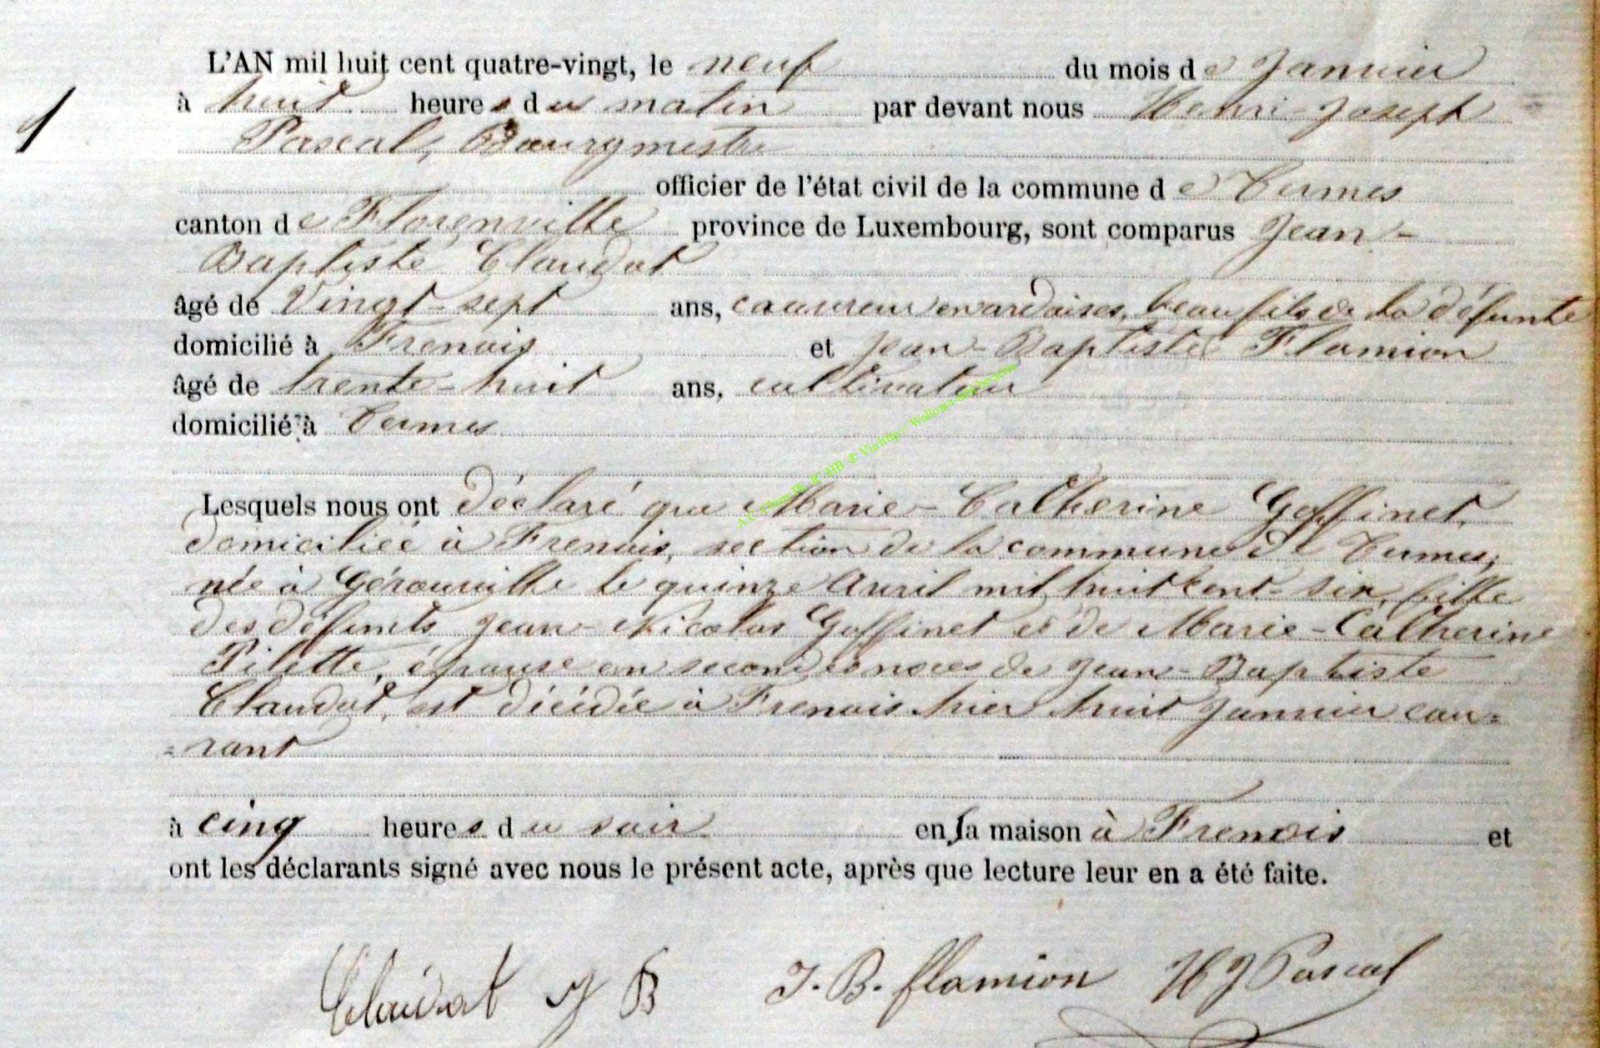 L'AN mil huit cent quatre-vingt, le neuf du mois de Janvier
1
à huit heures du matin par devant nous Henri-Joseph
Pascal, Bourgmestre
officier de l'état civil de la commune de Termes
canton de Florenville province de Luxembourg, sont comparus Jean-
Baptiste Claudot
âgé de Vingt-sept ans, couvreur en ardoises, beau fils de la défunte
domicilié à Frenois et Jean-Baptiste Flamion
âgé de trente-huit ans, cultivateur
domicilié à Termes
Lesquels nous ont déclaré que Marie-Catherine Goffinet,
domiciliée à Frenois, section de la commune de Termes,
née à Gérouville le quinze Avril mil huit cent-six, fille
des défunts Jean-Nicolas Goffinet et de Marie-Catherine
Pilette, épouse en secondes noces de Jean-Baptiste
Claudot, est décédée à Frenois hier huit Janvier cou=
=rant
à cinq heures du soir en sa maison à Frenois et
ont les déclarants signé avec nous le présent acte, après que lecture leur en a été faite.
Claudot J B J. B. flamion H J Pascal